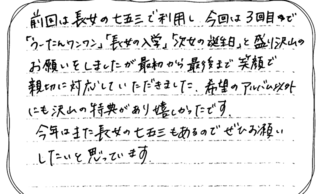 前回は長女の七五三で利用し、今回は3回目ので
「うーたんワンワン」「長女の入学」「次女の誕生日」と盛り沢山の
お願いをしましたが最初から最後まで笑顔で
親切に対応していただきました。希望のアルバム以外
にも沢山の特典があり嬉しかったです。
今年はまた長女の七五三もあるのでぜひお願い
したいと思っています